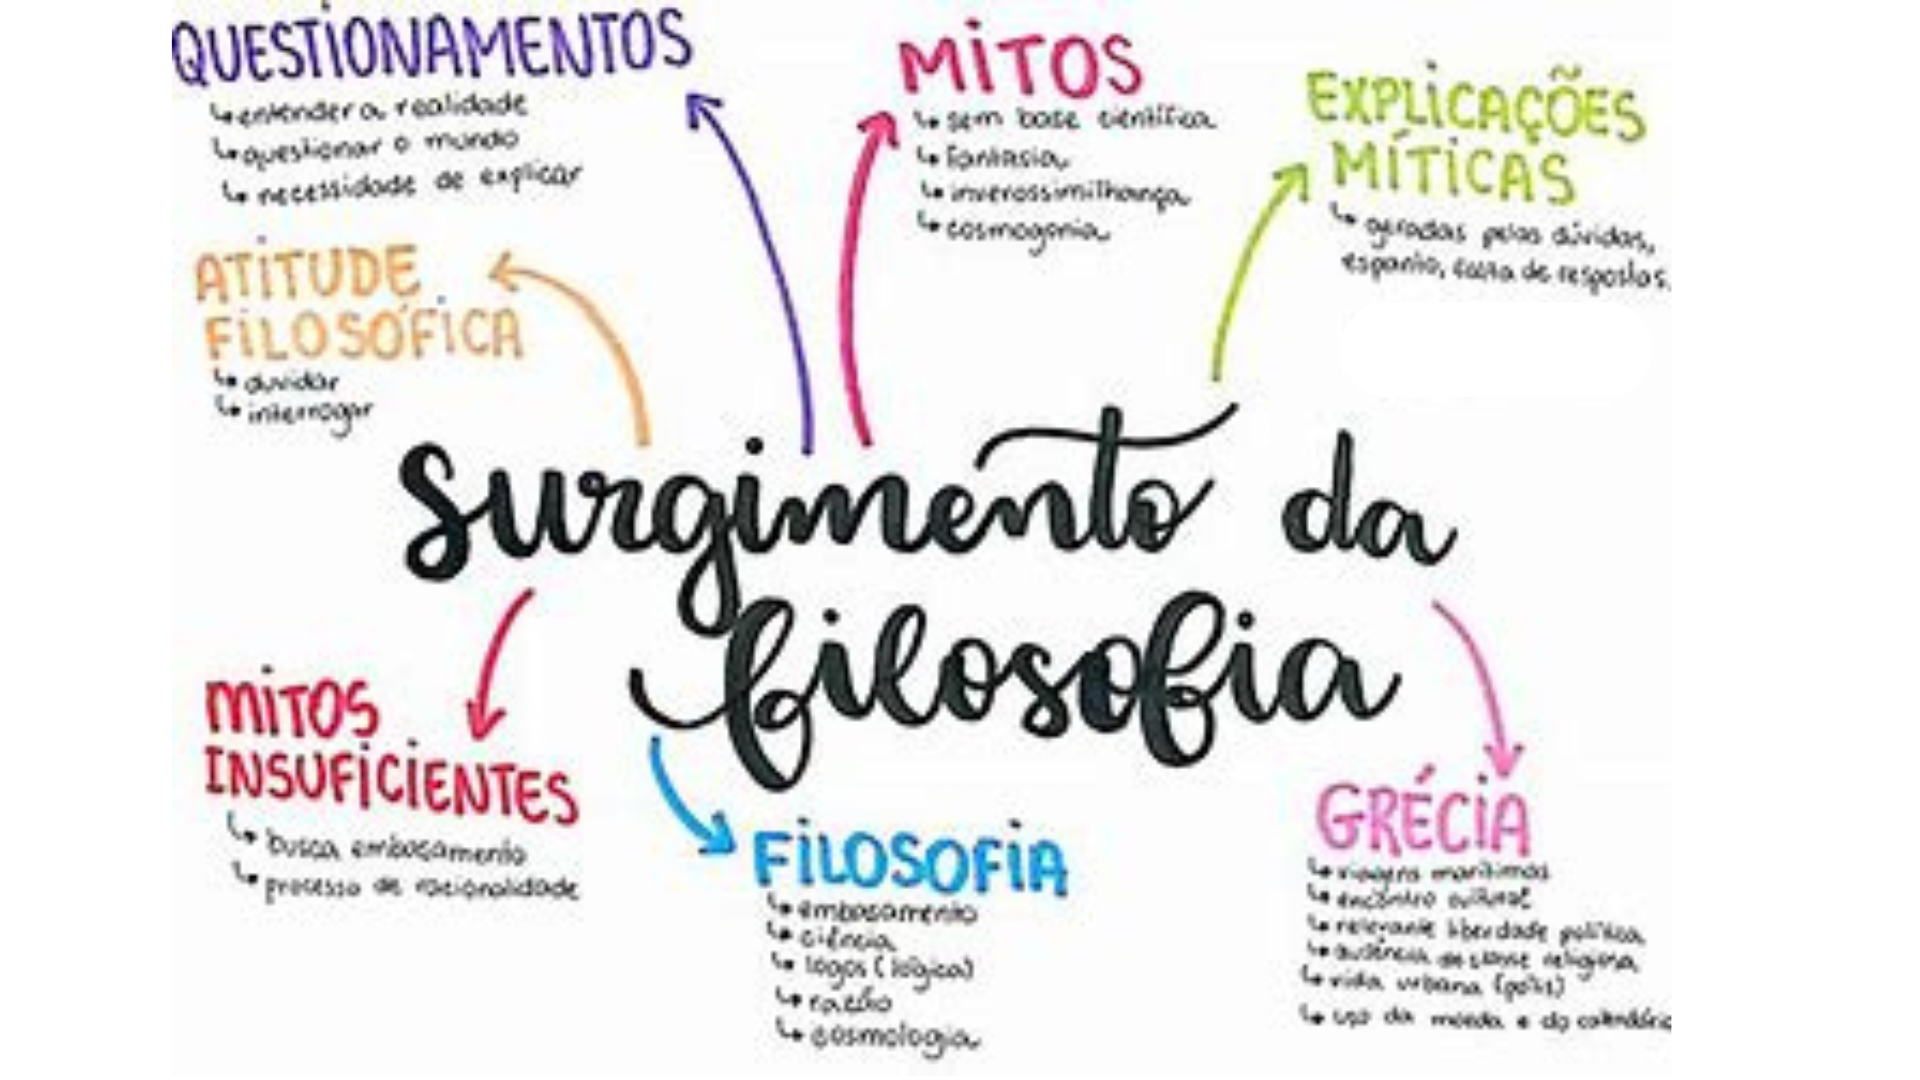 QUESTIONAMENTOS
entender a realidade
questionar o mundo
necessidade de explicar
MITOS
sem base científica
fantasia
inverossimilhança
cosmogonia
EXPLICAÇÕES
MÍTICAS
geradas pelas dúvidas,
espanto, de respostas.
ATITUDE
FILOSÓFICA
duvidar
interrogar
surgimento da
filosofia
MITOS
INSUFICIENTES
busca embasamento
processo de racionalidade
FILOSOFIA
embasamento
ciência
logos (lógica)
razão
cosmologia
GRÉCIA
viagens marítimas
encontro cultural
relevante liberdade política
ausência de classe religiosa
vida urbana (pólis)
uso da moeda e do calendário